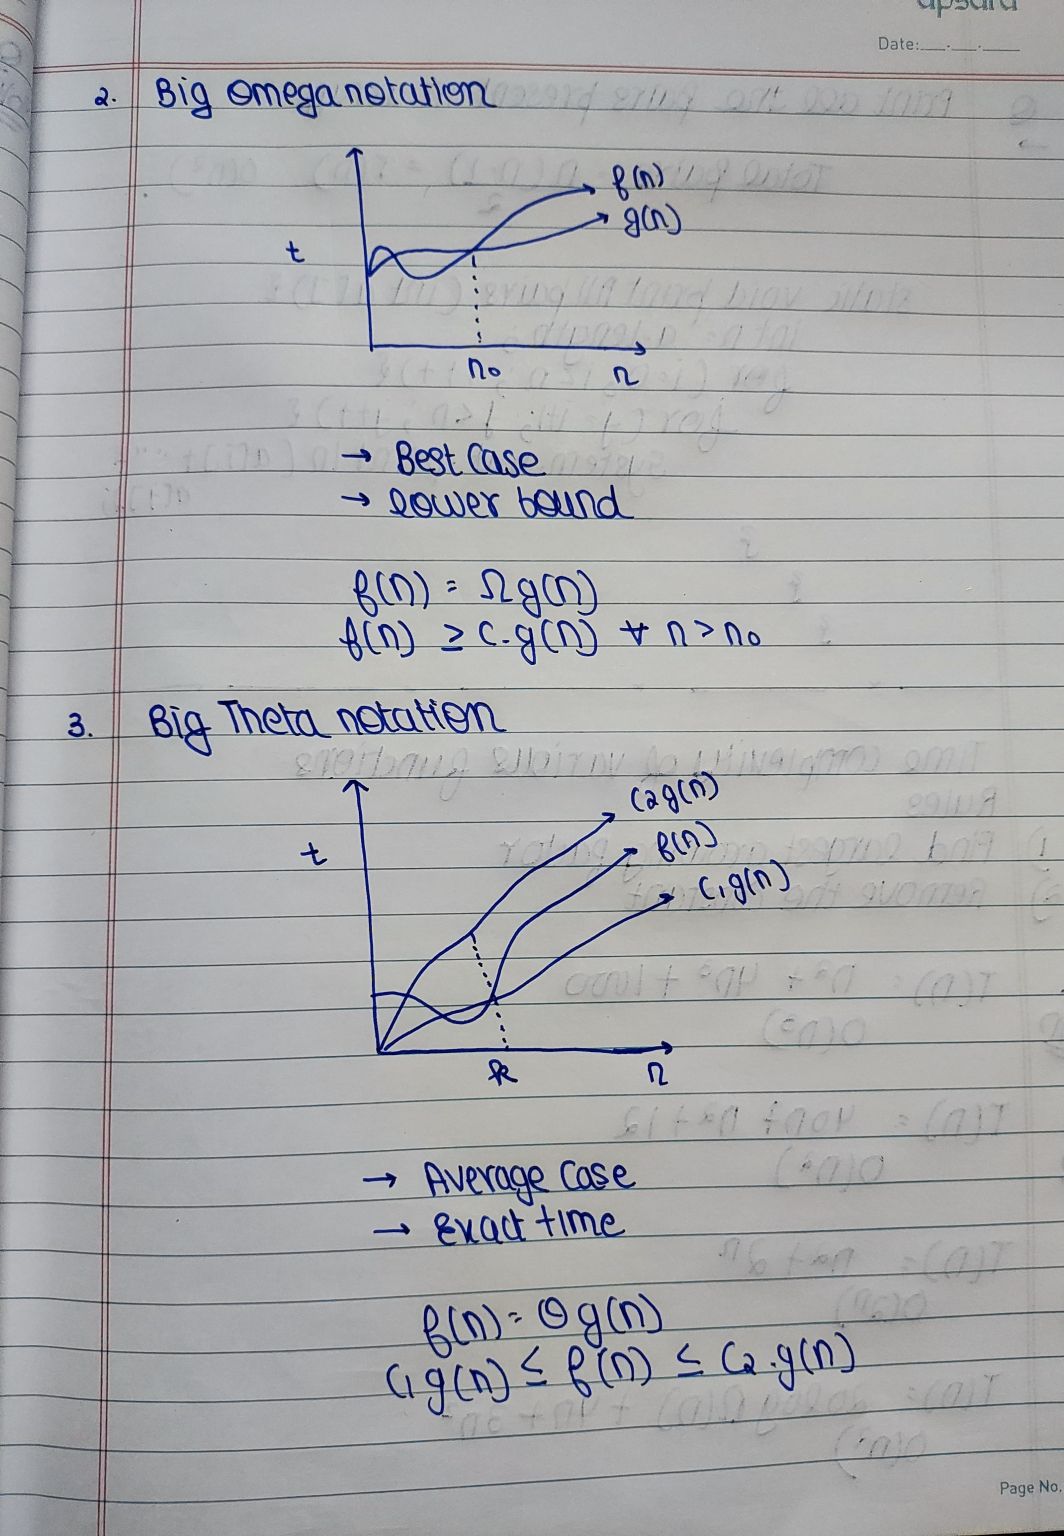 apsara
Date:
2. Big Omega notation
f(n)
g(n)
t
n₀ n
→ Best Case
→ lower bound
f(n) = Ω g(n)
f(n) ≥ c.g(n) ∀ n > n₀
3. Big Theta notation
C₂g(n)
f(n)
t
C₁g(n)
k n
→ Average Case
→ Exact time
f(n) = Θ g(n)
C₁ g(n) ≤ f(n) ≤ C₂.g(n)
Page No.